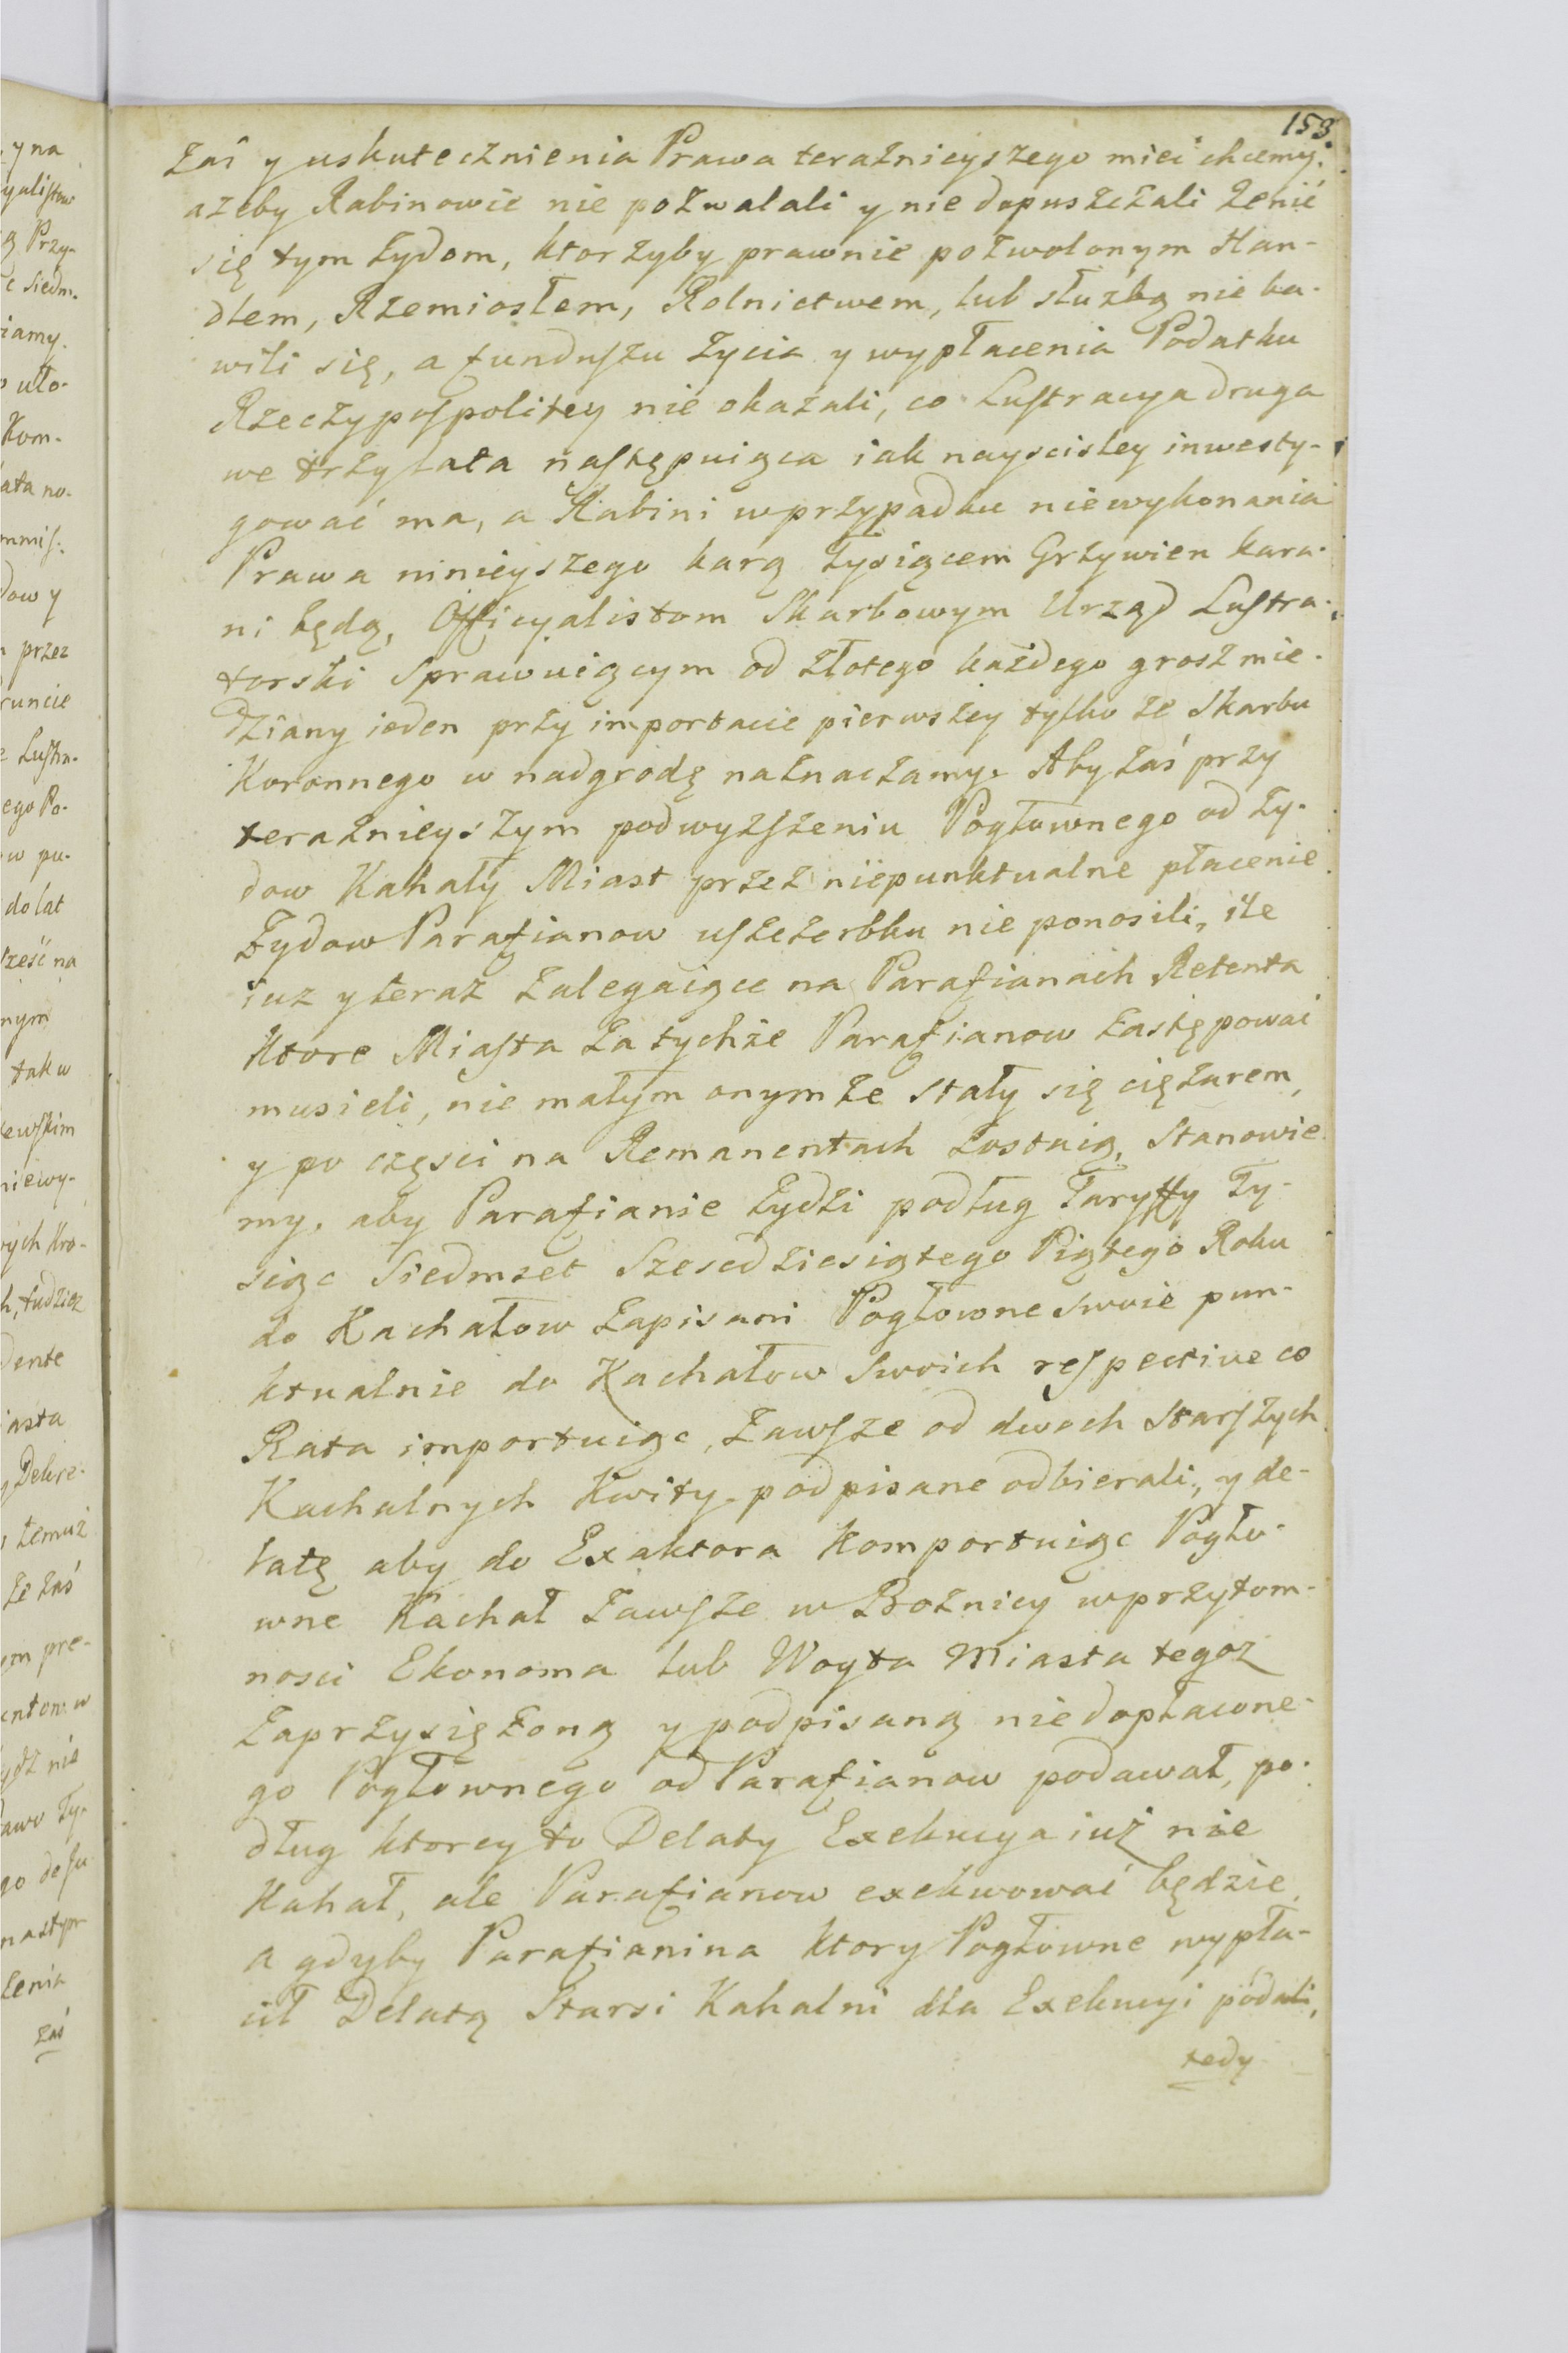 153
zaś y uskutecznienia Prawa terazn​ieyszego mieć chcemy.
azeby Rabinowie nie pozwalali y nie dopuszczali żenić
się tym Żydom, ktorzyby prawnie pozwolonym Han-
dlem, Rzemiosłem, Rolnictwem, lub służbą nie ba-
wili się, a funduszu życia y wypłacenia Podatku
Rzeczypospolitey nie okazali, co Lustracya druga
we trzy lata następuiąca iak nayscisley inwesty-
gować ma, a Rabini w przypadku niewykonania
Prawa ninieyszego karą tysiącem Grzywien kara-
ni będą, Officyalistom Skarbowym Urząd Lustra-
torski Sprawuiącym od złotego każdego grosz mie-
dziany ieden przy importacie pierwszey tylko ze Skarbu
Koronnego w nadgrodę naznaczamy. Aby zaś przy
teraznieyszym podwyzszeniu Pogłownego od Ży-
dow Kahały Miast przez niepunktualne płacenie
Żydow Parafianow uszczerbku nie ponosili, ile
iuz y teraz zalegaiące na Parafianach Retenta
ktore Miasta za tychże Parafianow zastępować
musieli, nie małym onymże stały się ciężarem,
y po części na Remanentach zostaią, Stanowie
my, aby Parafianie Żydzi podług Taryffy Ty-
siąc Siedmset Szescdziesiątego Piątego Roku
do Kachałow zapisani Pogłowne swoie pun-
ktualnie do Kachałow Swoich respective co
Rata importuiąc, zawsze od dwoch starszych
Kachalnych Kwity podpisane odbierali, y de-
latę aby do Exaktora komportuiąc Pogło-
wne Kachał zawsze w Boznicy w przytom-
nosci Ekonoma lub Woyta Miasta tegoz
zaprzysiężoną y podpisaną niedopłacone-
go Pogłownego od Parafianow podawał, po-
dług ktorey to Delaty Exekucya iuż nie
Kahał, ale Parafianow exekwować będzie,
a gdyby Parafianina ktory Pogłowne wypła-
cił Delatą Starsi Kahalni dla Exekucyi podali,
tedy